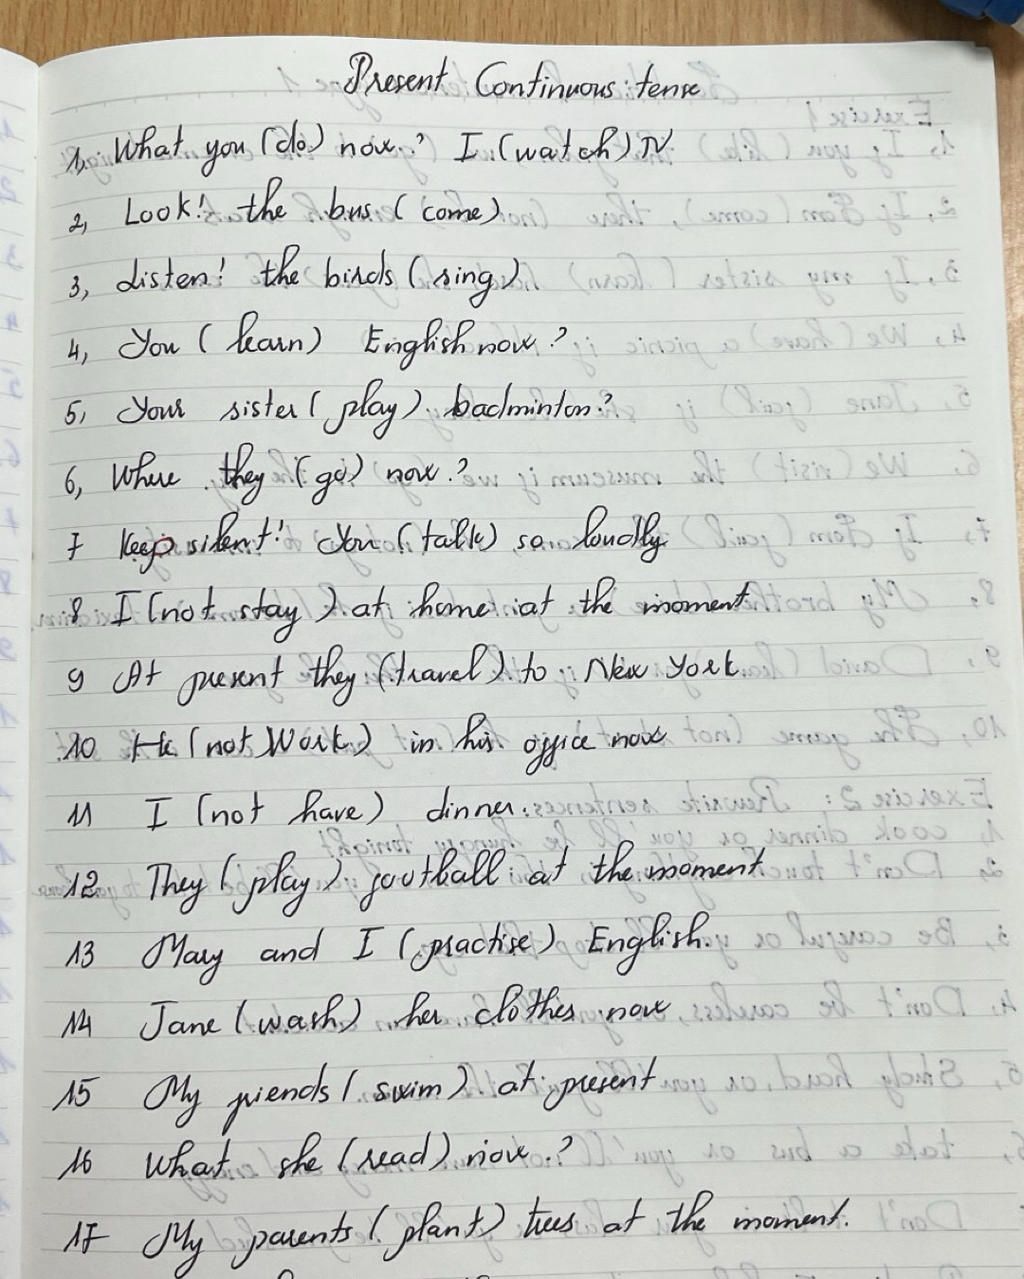 Present Continuous tense
1. What you (do) now? I (watch) TV
2, Look! the bus (come)
3, Listen! the birds (sing)
4, You (learn) English now?
5, Your sister (play) badminton?
6, Where they (go) now?
7 Keep silent! You (talk) so loudly
8 I (not stay) at home at the moment
9 At present they (travel) to New York
10 He (not Work) in his office now
11 I (not have) dinner.
12 They (play) football at the moment
13 Mary and I (practise) English.
14 Jane (wash) her clothes now
15 My friends (swim) at present
16 What she (read) now?
17 My parents (plant) trees at the moment.